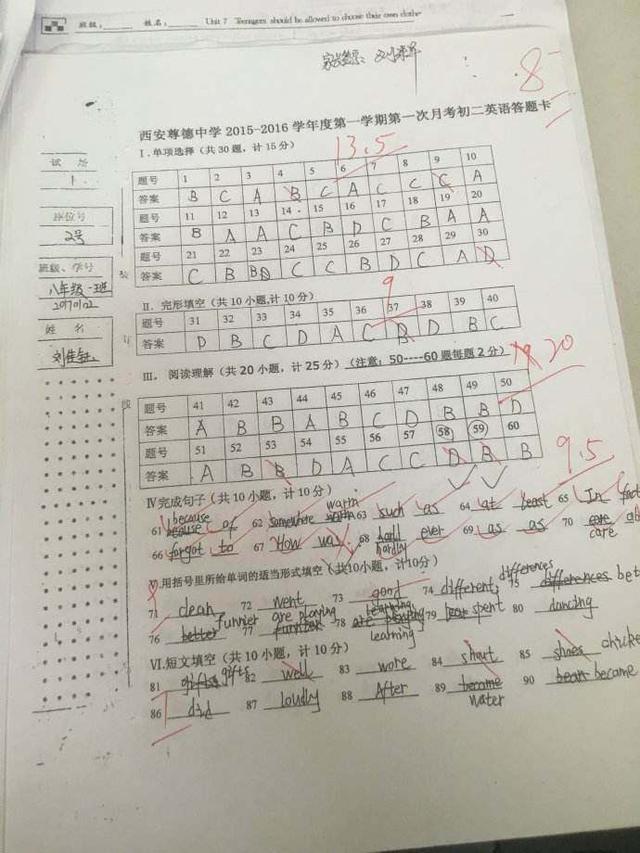 班级:______ 姓名:______ Unit 7 Teenagers should be allowed to choose their own clothe
家长签字:
8
西安尊德中学2015-2016学年度第一学期第一次月考初二英语答题卡
Ⅰ.单项选择（共30题，计15分）
13.5
题号 1 2 3 4 5 6 7 8 9 10
答案 B C A B C A C C C A
题号 11 12 13 14 15 16 17 18 19 20
答案 B A A C B D C B A A
题号 21 22 23 24 25 26 27 28 29 30
答案 C B B C C B D C A D
Ⅱ. 完形填空（共10小题,计10分）
9
题号 31 32 33 34 35 36 37 38 39 40
答案 D B C D A C B D B C
Ⅲ. 阅读理解（共20小题，计25分）（注意：50----60题每题2分）
20
题号 41 42 43 44 45 46 47 48 49 50
答案 A B B A B C D B B D
题号 51 52 53 54 55 56 57 58 59 60
答案 A B B D A C C D B B
9.5
Ⅳ完成句子（共10小题，计10分）
61 because of 62 Somewhere warm 63 such as 64 at least 65 In fact
66 forgot to 67 How was 68 hardly ever 69 as as 70 care
Ⅴ.用括号里所给单词的适当形式填空（共10小题，计10分）
71 clean 72 went 73 good 74 different 75 differences
76 funnier 77 are playing 78 learning 79 spent 80 dancing
Ⅵ.短文填空（共10小题，计10分）
81 gifts 82 well 83 wore 84 shout 85
86 did 87 loudly 88 After 89 water 90 became
试 场
1.
座位号
2号
班级、学号
八年级一班
姓 名
装
订